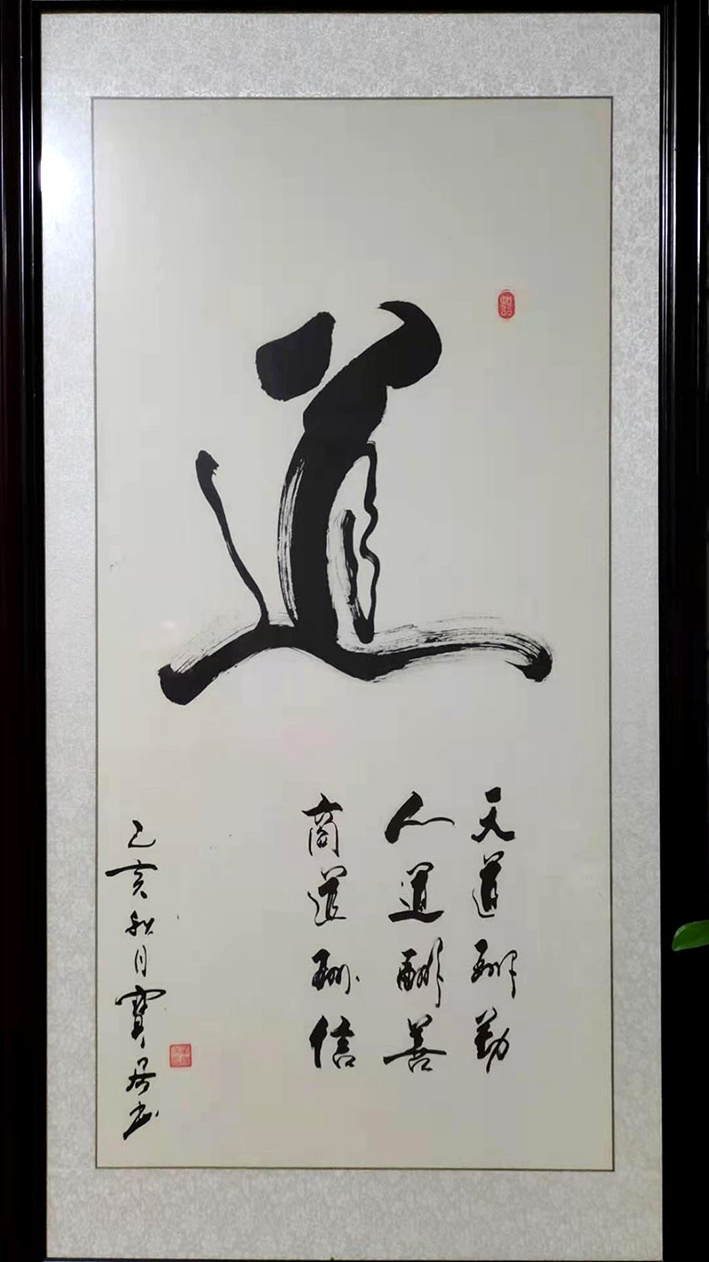 道
天道酬勤
人道酬善
商道酬信
己亥秋月寶居书